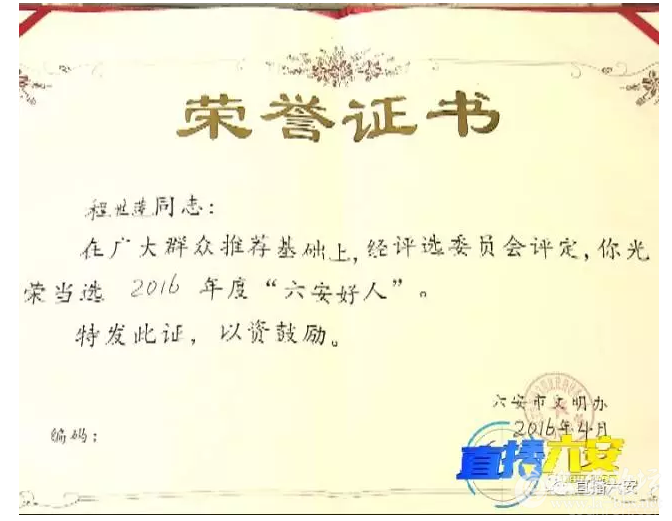 荣誉证书
程世莲同志:
在广大群众推荐基础上,经评选委员会评定,你光
荣当选 2016 年度“六安好人”。
特发此证,以资鼓励。
六安市文明办
2016年4月
编码:
直播六安
直播六安